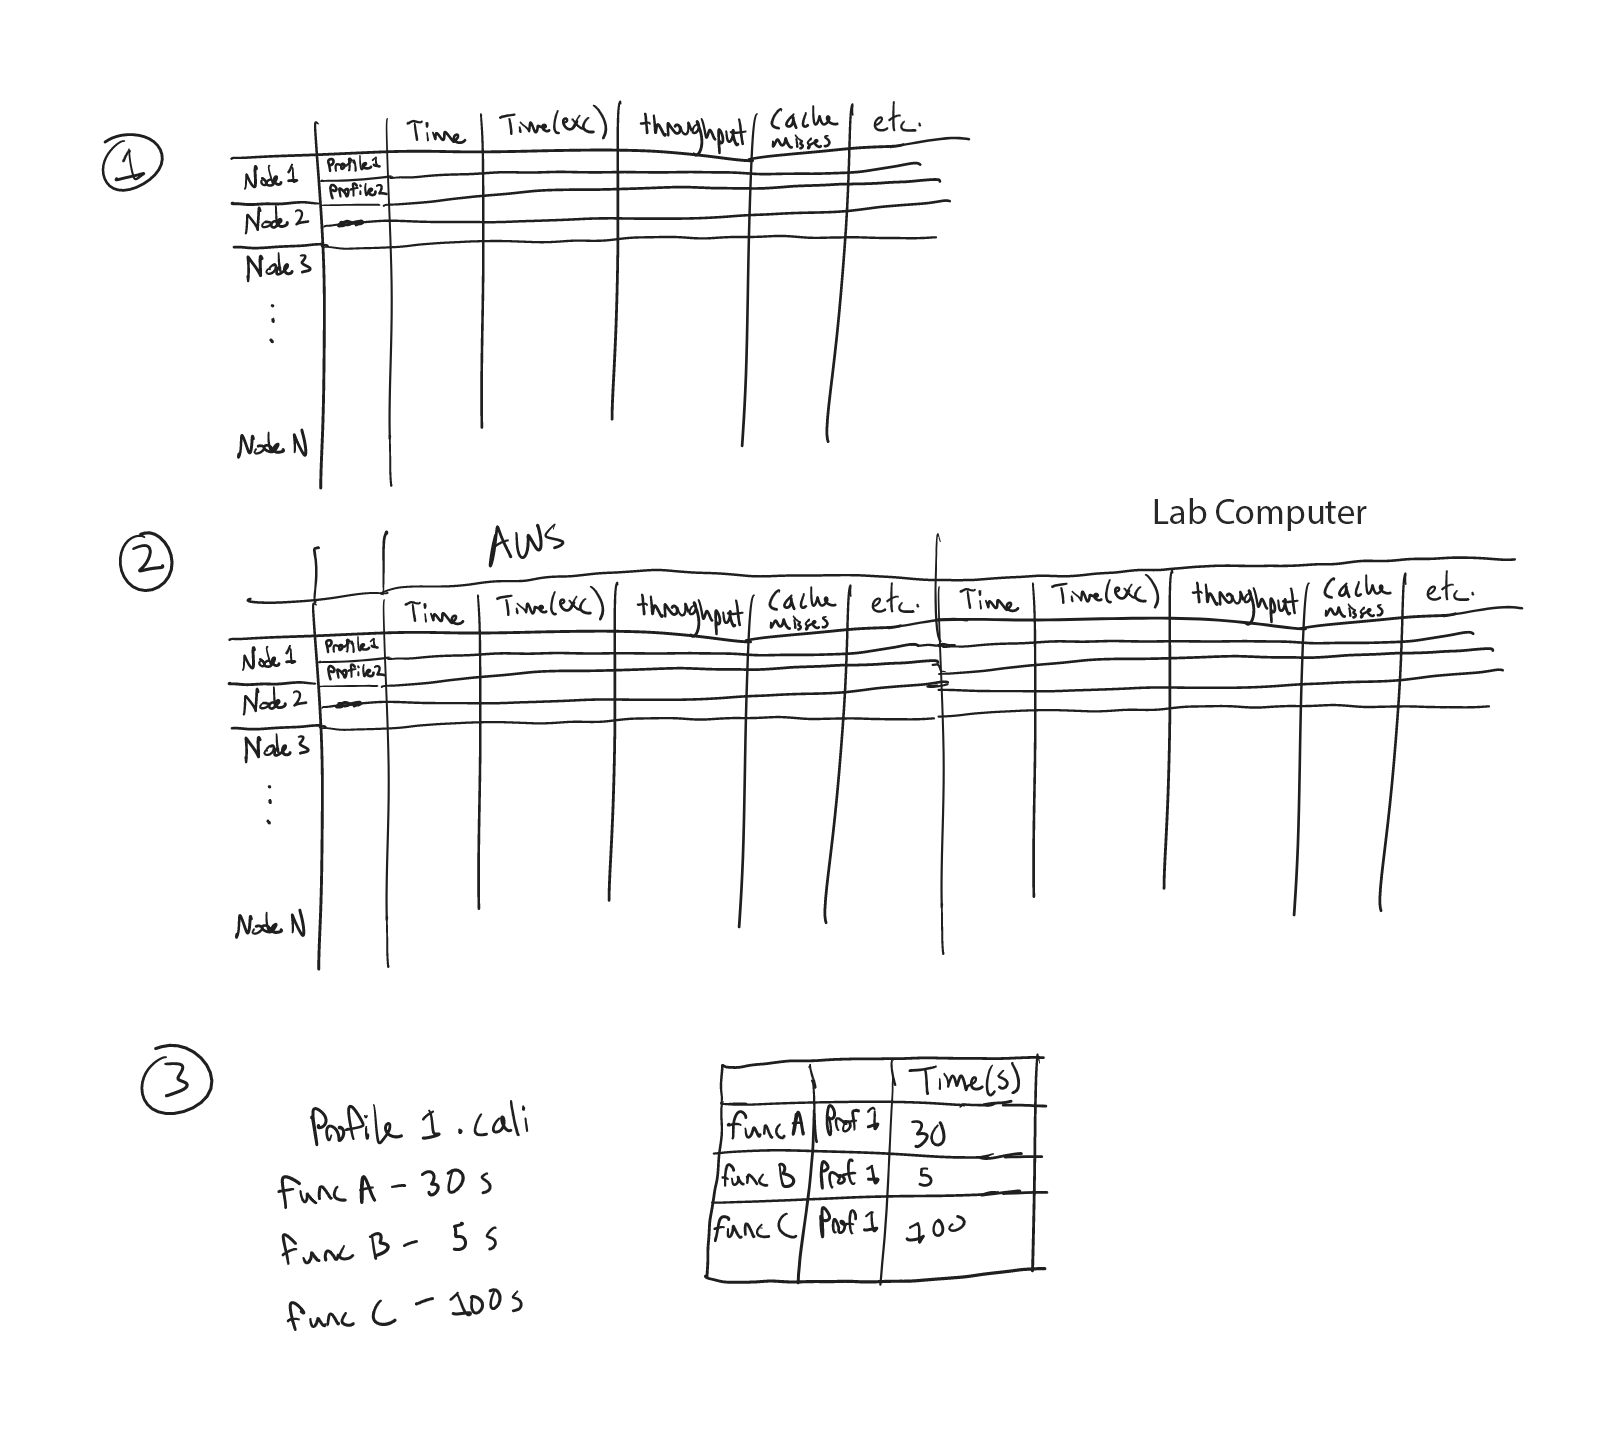 1
Time Time(exc) throughput Cache misses etc.
Node 1 Profile1
Profile2
Node 2
Node 3
Node N
2
AWS Lab Computer
Time Time(exc) throughput Cache misses etc. Time Time(exc) throughput Cache misses etc.
Node 1 Profile1
Profile2
Node 2
Node 3
Node N
3
Profile 1.cali
func A - 30 s
func B - 5 s
func C - 100 s
Time(s)
func A Prof 1 30
func B Prof 1 5
func C Prof 1 100